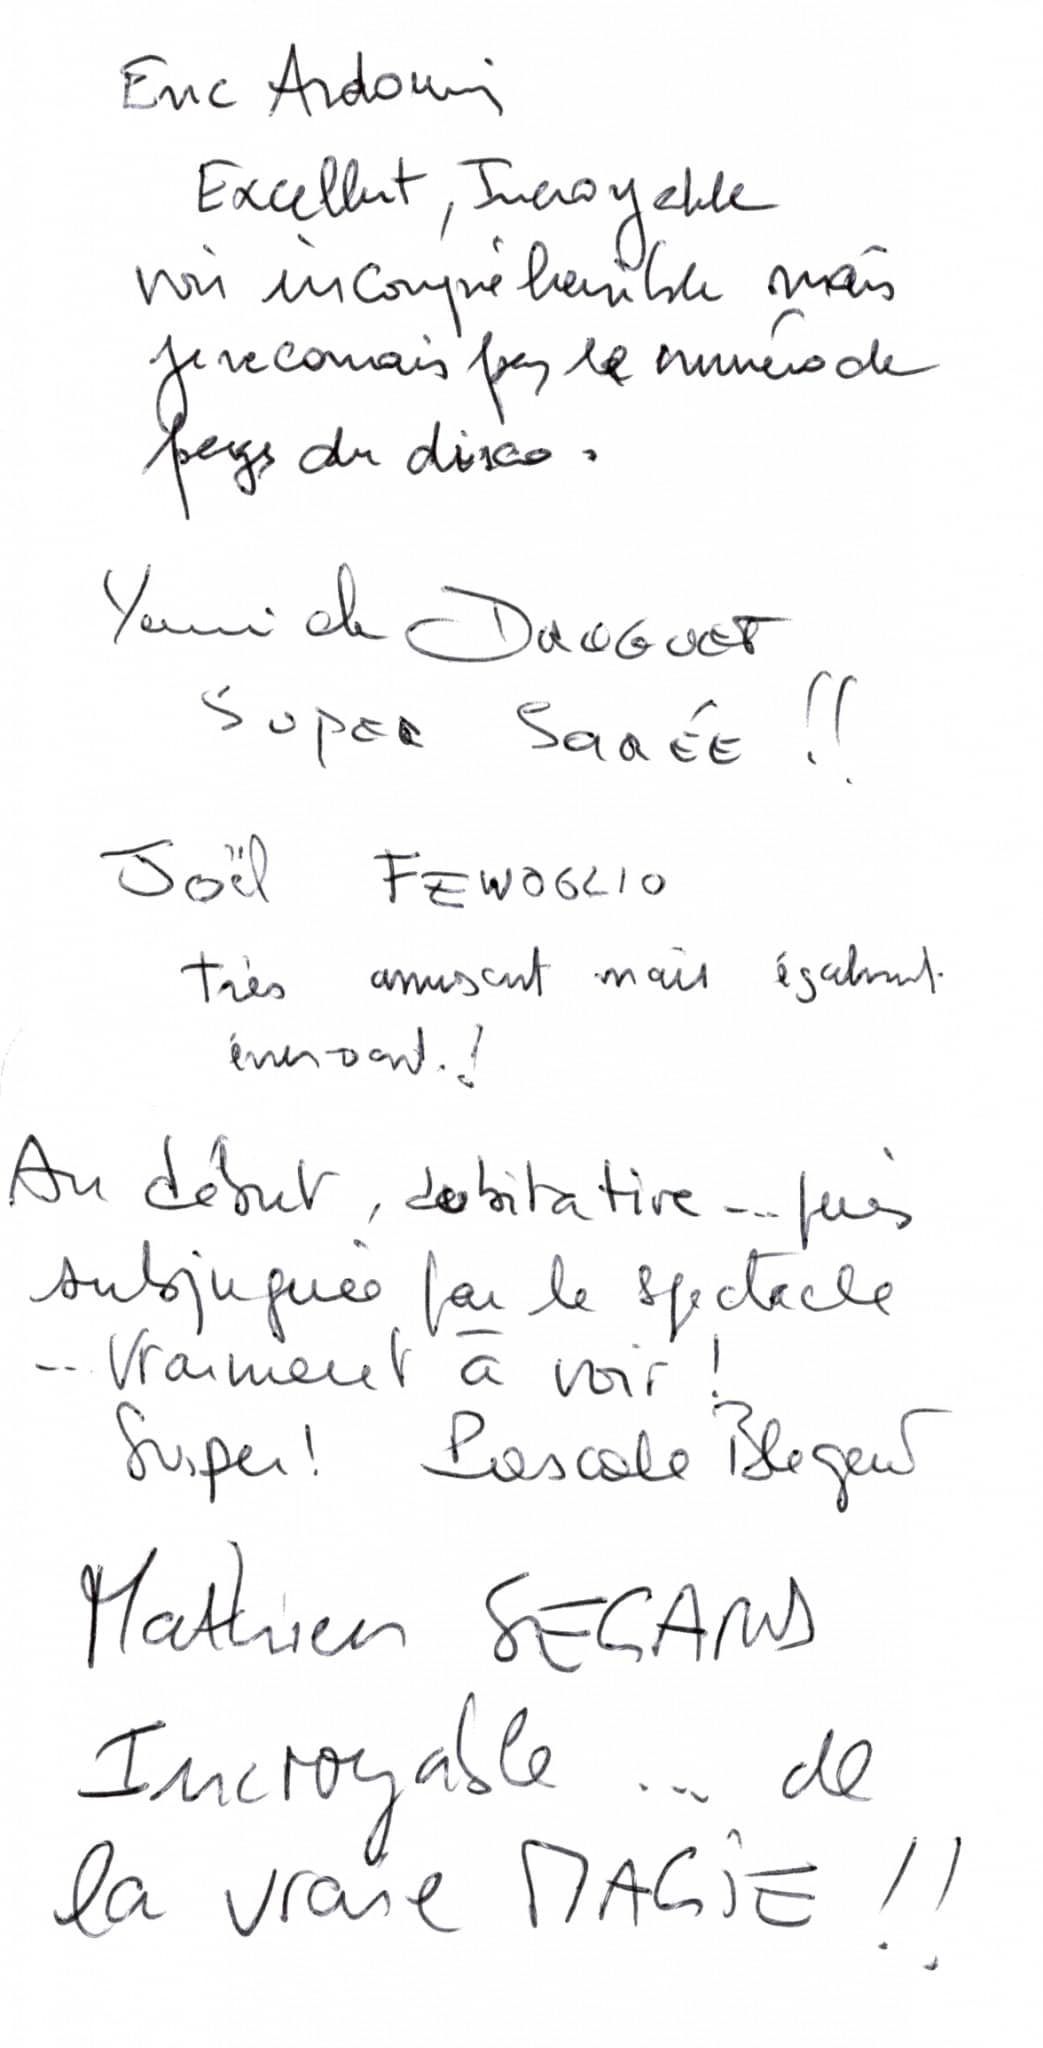 Eric Ardouin
Excellent, Incroyable
voir incompréhensible mais
je ne connais pas le numéro de
pays du disco.
Yannick DROGUET
SUPER SOIRÉE !!
Joël FENOGLIO
très amusant mais également
énervant.!
Au début, dubitative --.. puis
subjuguée par le spectacle
--. Vraiment à voir !
Super! Pascale
Mathieu SEGANS
Incroyable ... de
la vraie MAGIE !!